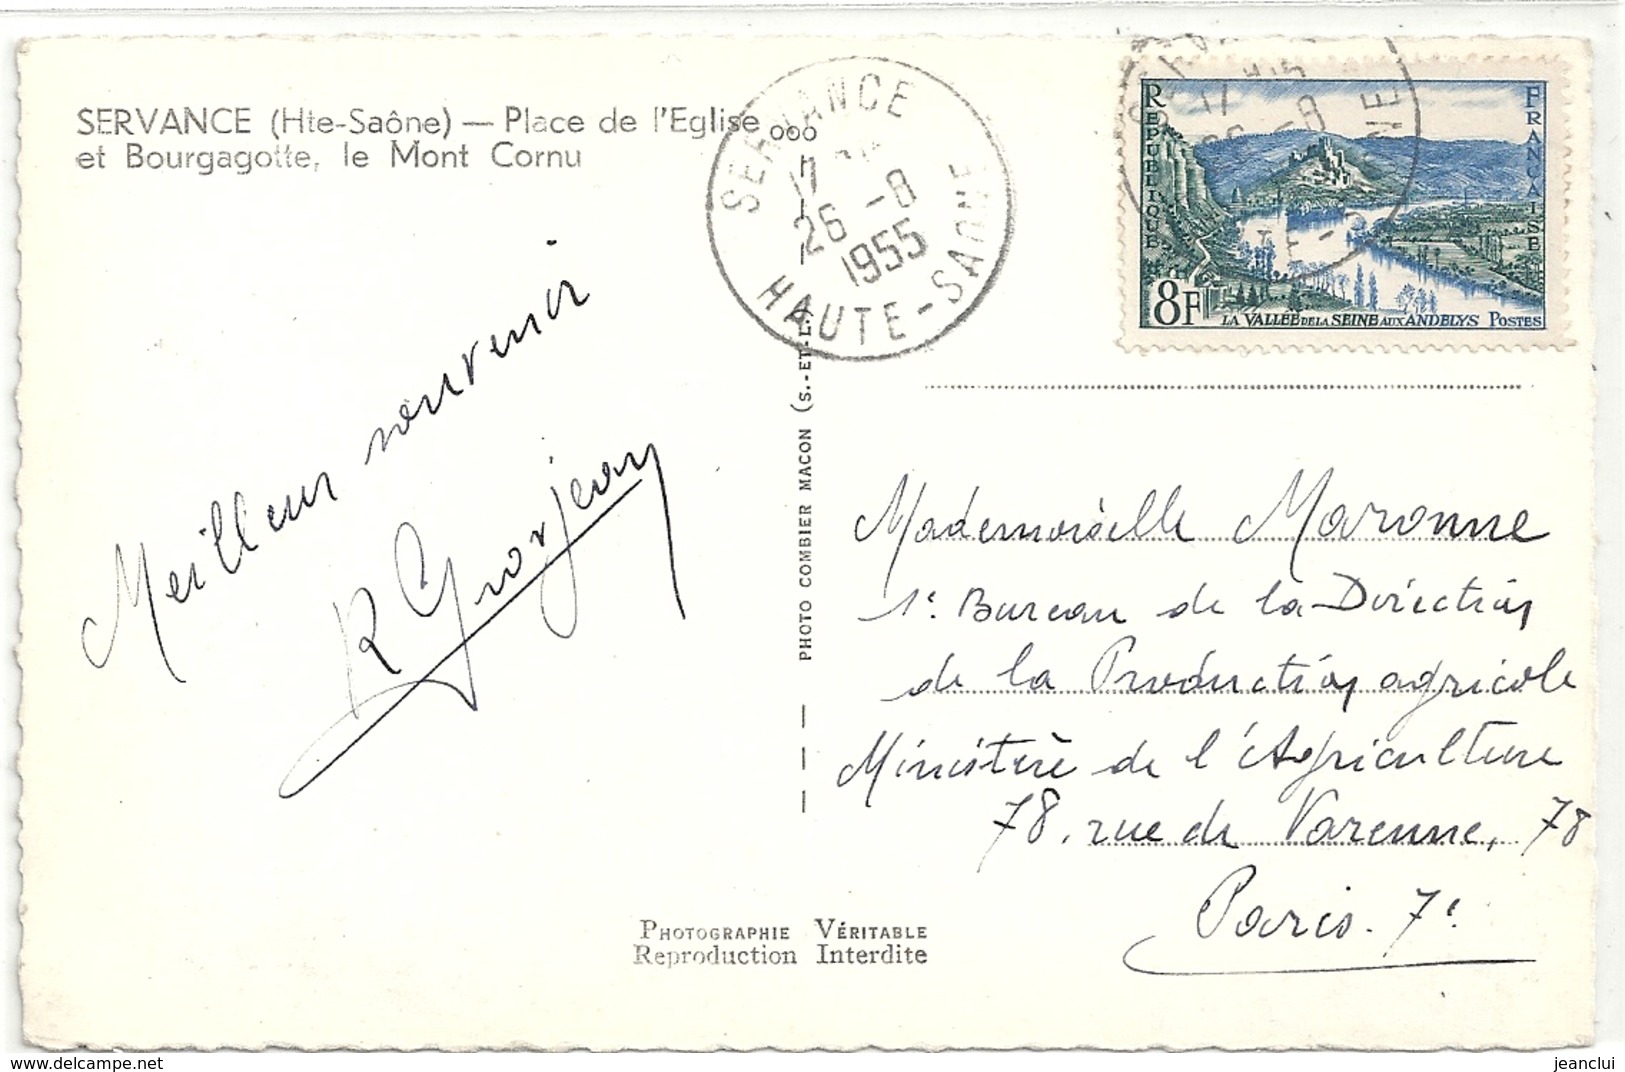 SERVANCE (Hte-Saône) — Place de l'Eglise
et Bourgagotte, le Mont Cornu
SERVANCE
17
26 -8
1955
HAUTE-SAONE
REPUBLIQUE
FRANÇAISE
8F
LA VALLÉE DE LA SEINE AUX ANDELYS POSTES
Meilleur souvenir
R Grosjean
PHOTO COMBIER MACON (S.-ET-L.)
Mademoiselle Maronne
1e Bureau de la Direction
de la Production agricole
Ministère de l'Agriculture
78, rue de Varenne, 78
Paris. 7e
PHOTOGRAPHIE VÉRITABLE
Reproduction Interdite
https://www.delcampe.net
jeanclui